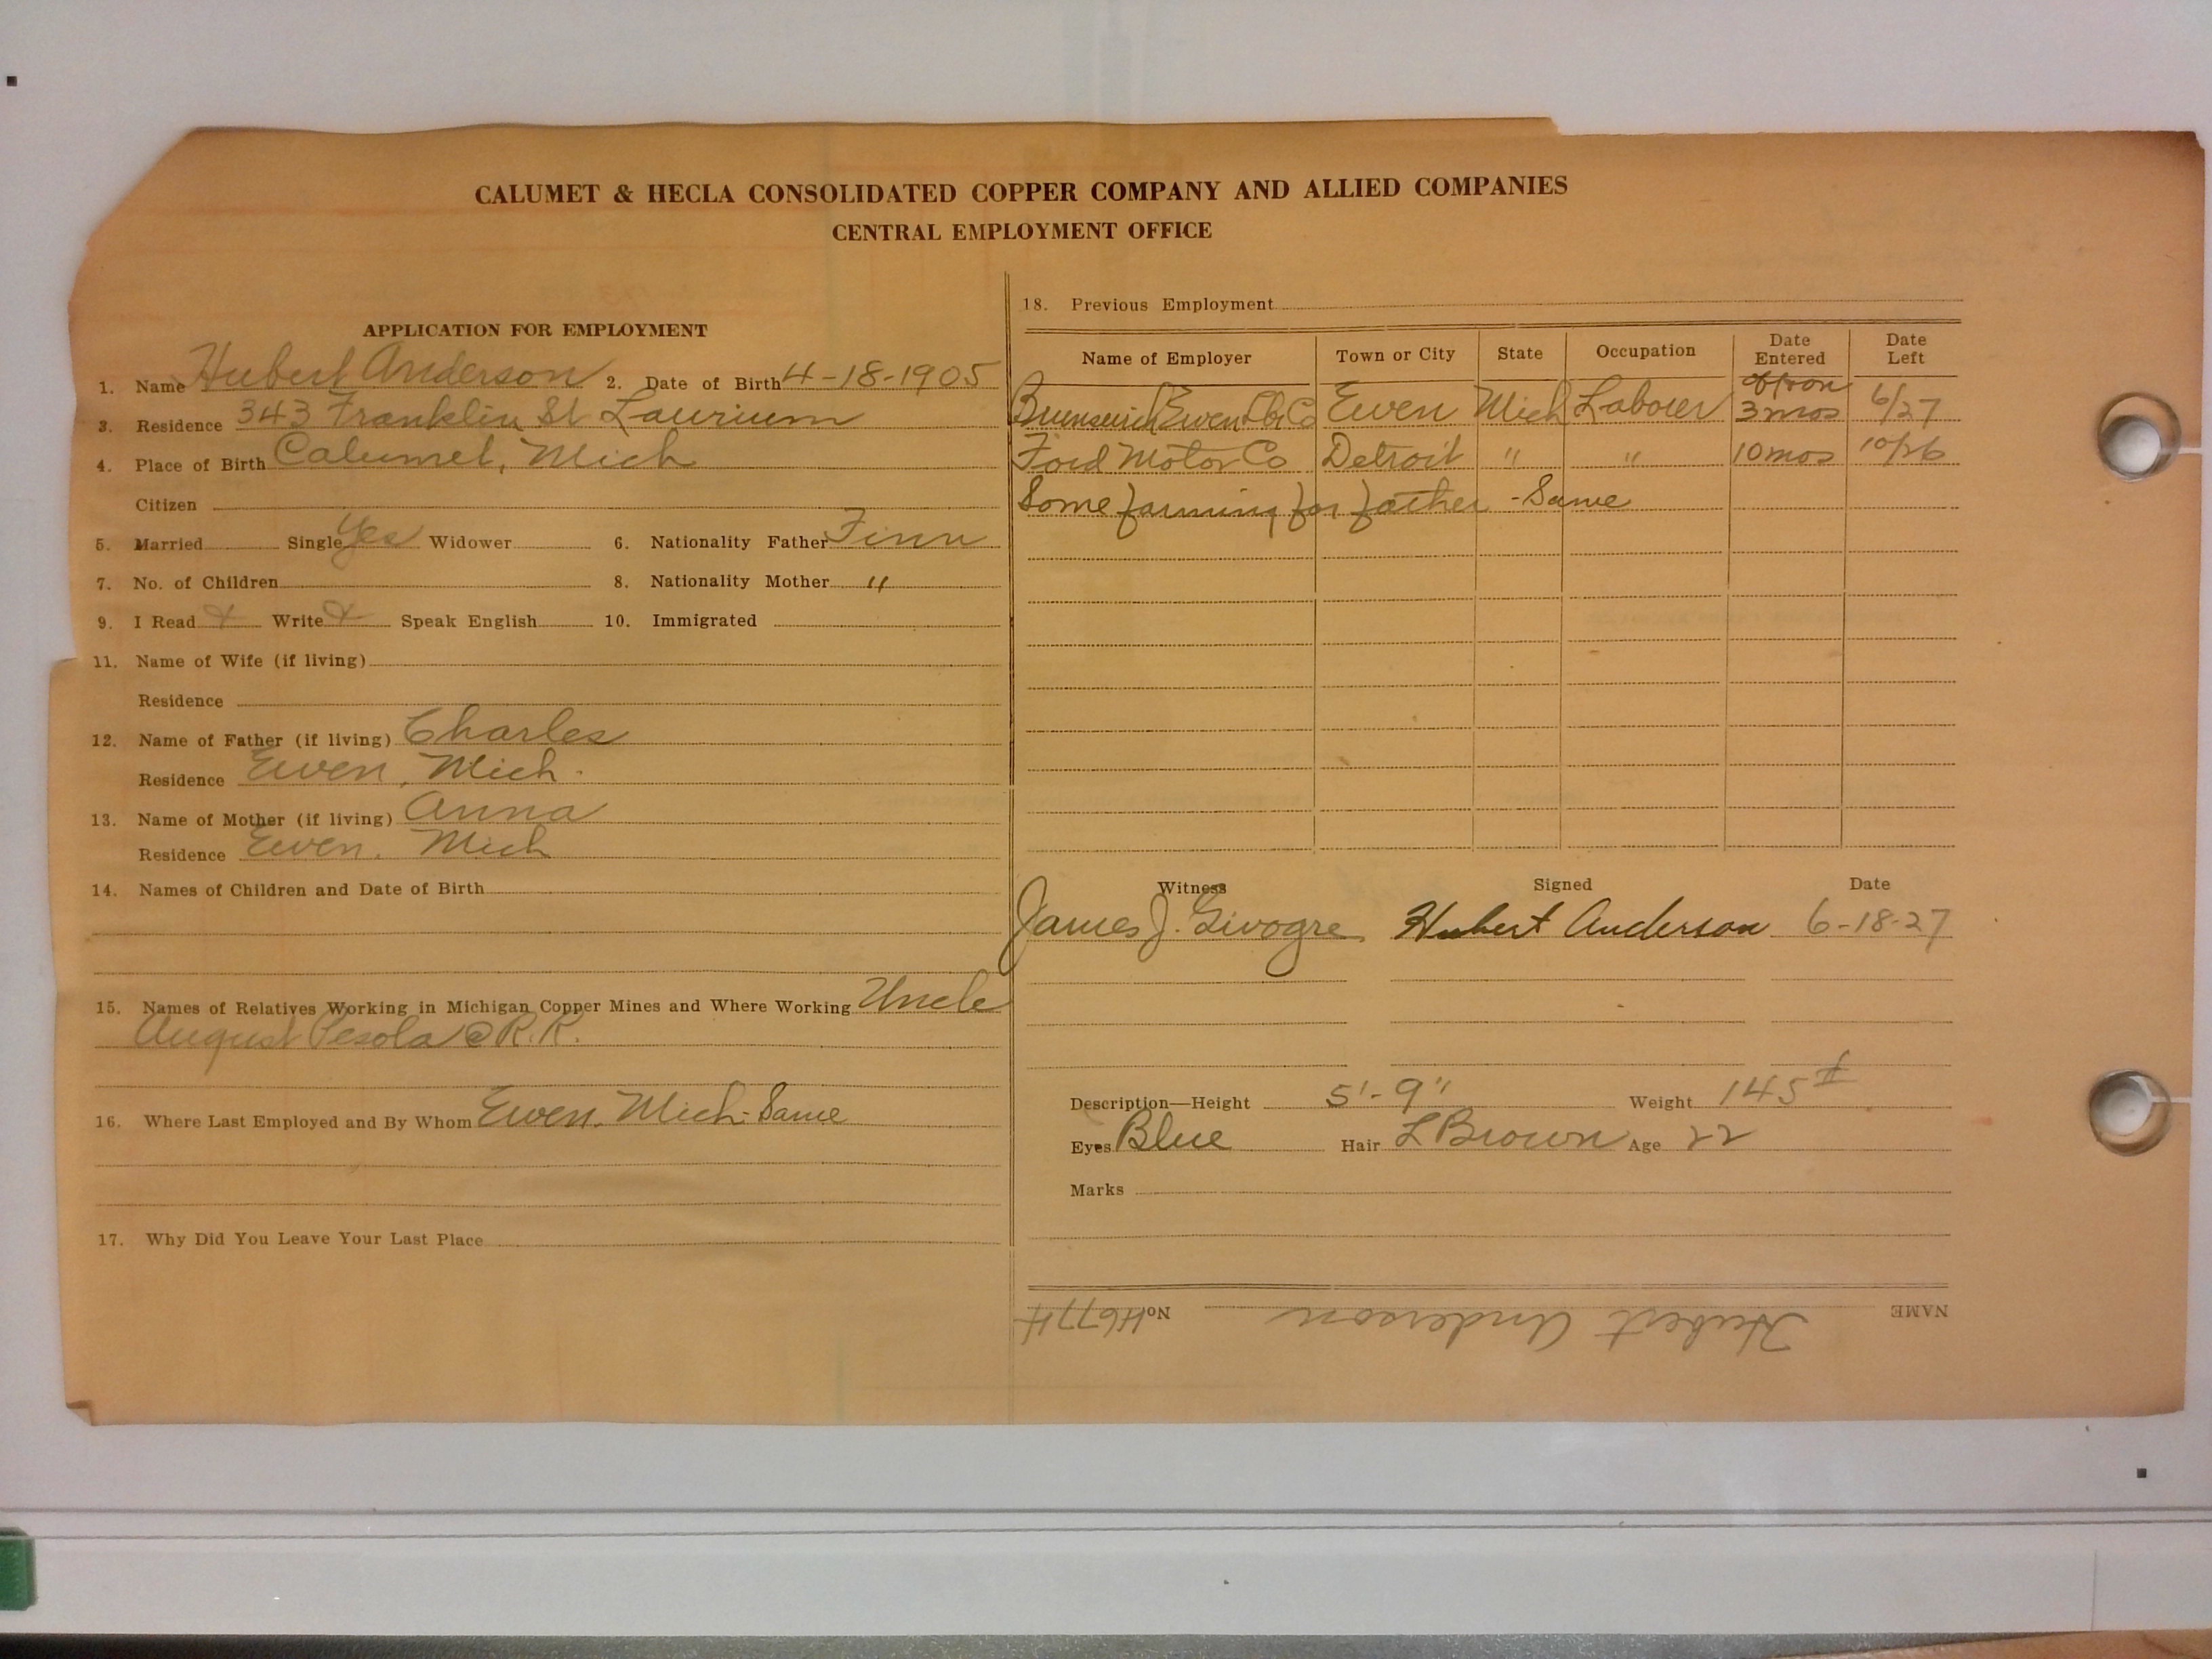 CALUMET & HECLA CONSOLIDATED COPPER COMPANY AND ALLIED COMPANIES
CENTRAL EMPLOYMENT OFFICE
APPLICATION FOR EMPLOYMENT
1. Name Hubert Anderson 2. Date of Birth 4-18-1905
3. Residence 343 Franklin St Laurium
4. Place of Birth Calumet, Mich
Citizen
5. Married Single Yes Widower 6. Nationality Father Finn
7. No. of Children 8. Nationality Mother "
9. I Read X Write X Speak English 10. Immigrated
11. Name of Wife (if living)
Residence
12. Name of Father (if living) Charles
Residence Ewen, Mich.
13. Name of Mother (if living) Anna
Residence Ewen, Mich
14. Names of Children and Date of Birth
15. Names of Relatives Working in Michigan Copper Mines and Where Working Uncle
August Pesola @ R.R.
16. Where Last Employed and By Whom Ewen, Mich - Same
17. Why Did You Leave Your Last Place
18. Previous Employment
Name of Employer Town or City State Occupation Date Entered Date Left
Ewen Co Ewen Mich Laborer 3 mos 6/27
Ford Motor Co Detroit " " 10 mos 10/26
Some farming for father - Same
Witness Signed Date
James J. Hubert Anderson 6-18-27
Description—Height 5'-9" Weight 145#
Eyes Blue Hair L Brown Age 22
Marks
NAME Hubert Anderson No.